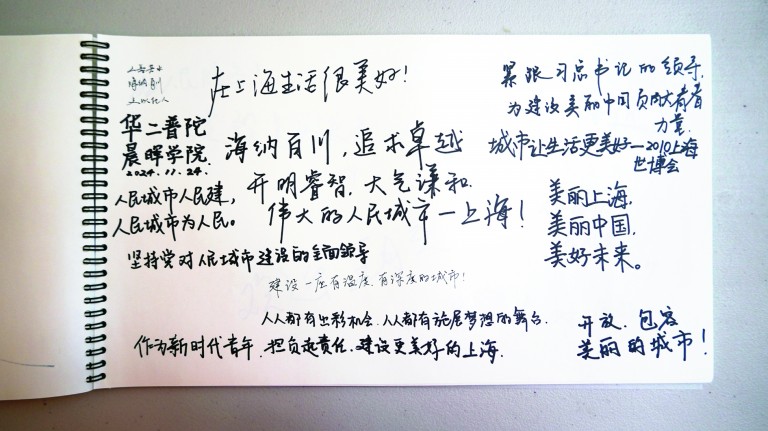 在上海生活很美好！
紧跟习总书记的领导，
为建设美丽中国贡献青春
力量
华二普陀
晨晖学院
2024.11.24.
海纳百川，追求卓越
开明睿智，大气谦和
城市让生活更美好—2010上海
世博会
人民城市人民建，
人民城市为人民。
伟大的人民城市—上海！
美丽上海，
美丽中国，
美好未来。
坚持党对人民城市建设的全面领导
建设一座有温度、有深度的城市！
人人都有出彩机会、人人都有施展梦想的舞台.
作为新时代青年，担负起责任，建设更美好的上海.
开放、包容
美丽的城市！